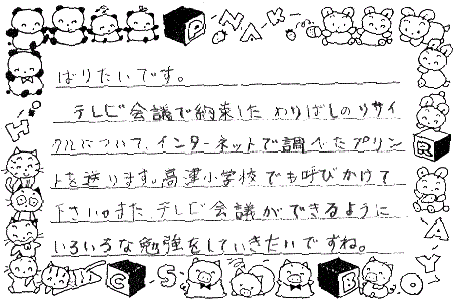 ばりたいです。
テレビ会議で約束したわりばしのリサイ
クルについて、インターネットで調べたプリン
トを送ります。高運小学校でも呼びかけて
下さい。また、テレビ会議ができるように
いろいろな勉強をしていきたいですね。